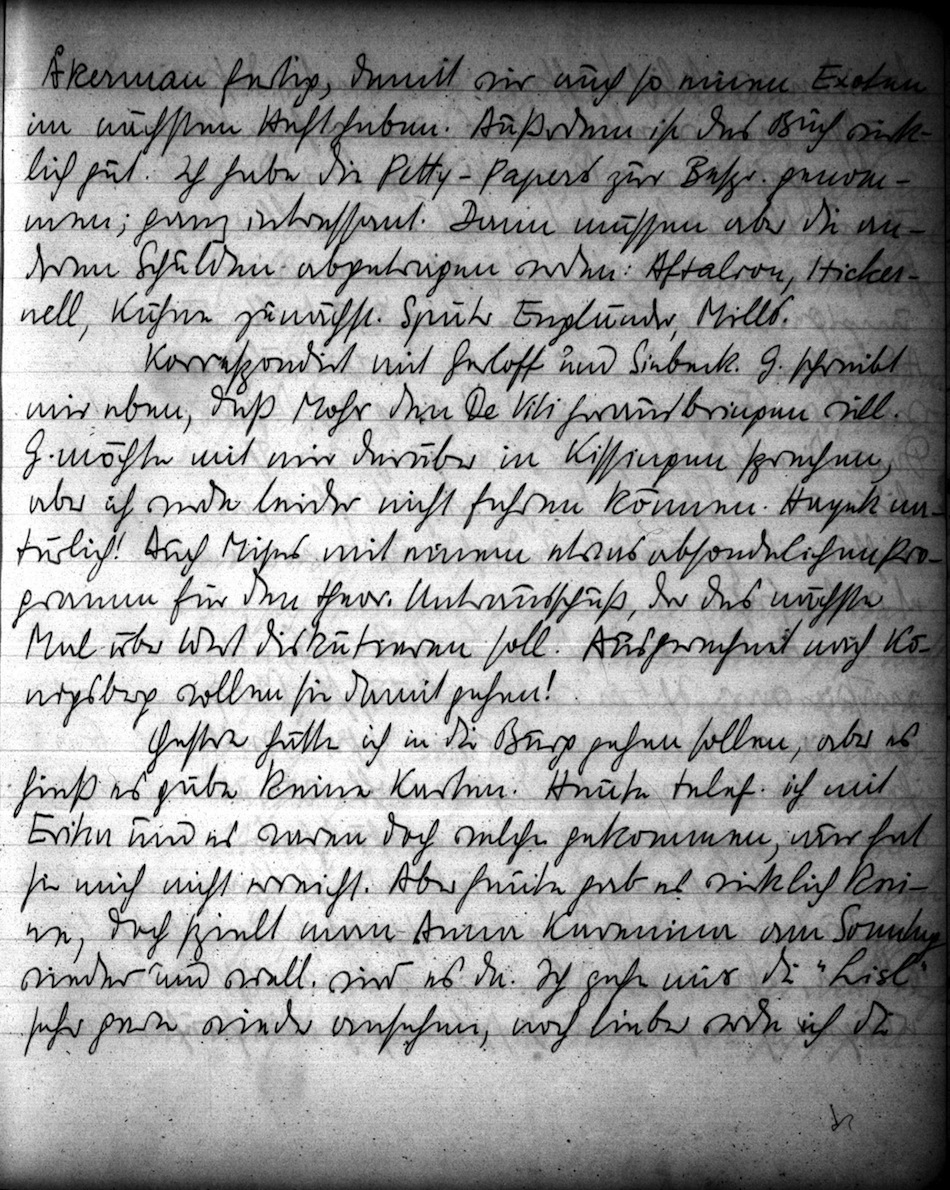 Åkerman fertig, damit wir auch so einen Exoten
im nächsten Heft haben. Außerdem ist das Buch wirk-
lich gut. Ich habe die Petty-Papers zur Bespr. genom-
men; ganz interessant. Dann müssen aber die an-
deren Schulden abgetragen werden: Aftalion, Hicker-
nell, Kühne zunächst. Später Engländer, Mills.
Korrespondiert mit Gerloff und Siebeck. G. schreibt
mir eben, daß Mohr den De Viti herausbringen will.
G. möchte mit mir darüber in Kissingen sprechen,
aber ich werde leider nicht fahren können. Hayek na-
türlich! Auch Mises mit einem etwas absonderlichen Pro-
gramm für den theor. Unterausschuß, der das nächste
Mal über Wert diskutieren soll. Ausgerechnet nach Kö-
nigsberg wollen sie damit gehen!
Gestern hätte ich in die Burg gehen sollen, aber es
hieß es gäbe keine Karten. Heute telef. ich mit
Erika und es waren doch welche gekommen, nur hat
sie mich nicht erreicht. Aber heute gab es wirklich kei-
ne, doch spielt man Anna Karenina am Sonntag
wieder und viell. wird es da. Ich gehe mir die "Lisl"
sehr gerne wieder ansehen, noch lieber werde ich die